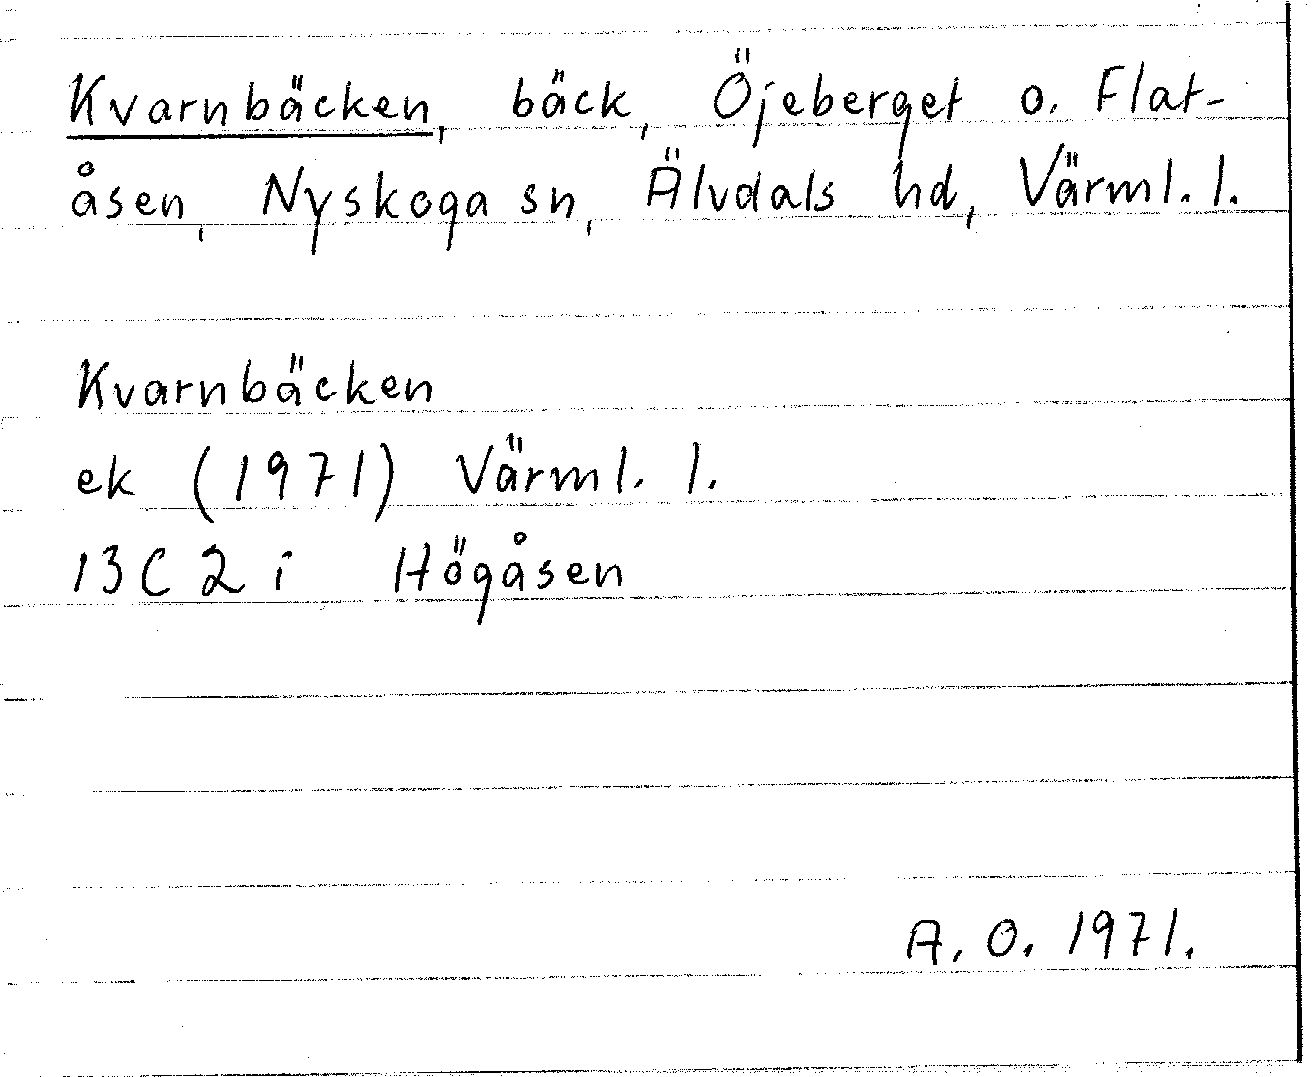 Kvarnbäcken, bäck, Öjeberget o. Flat-
åsen, Nyskoga sn, Älvdals hd, Värml. l.
Kvarnbäcken
ek (1971) Värml. l.
13C 2 i Högåsen
A. O. 1971.